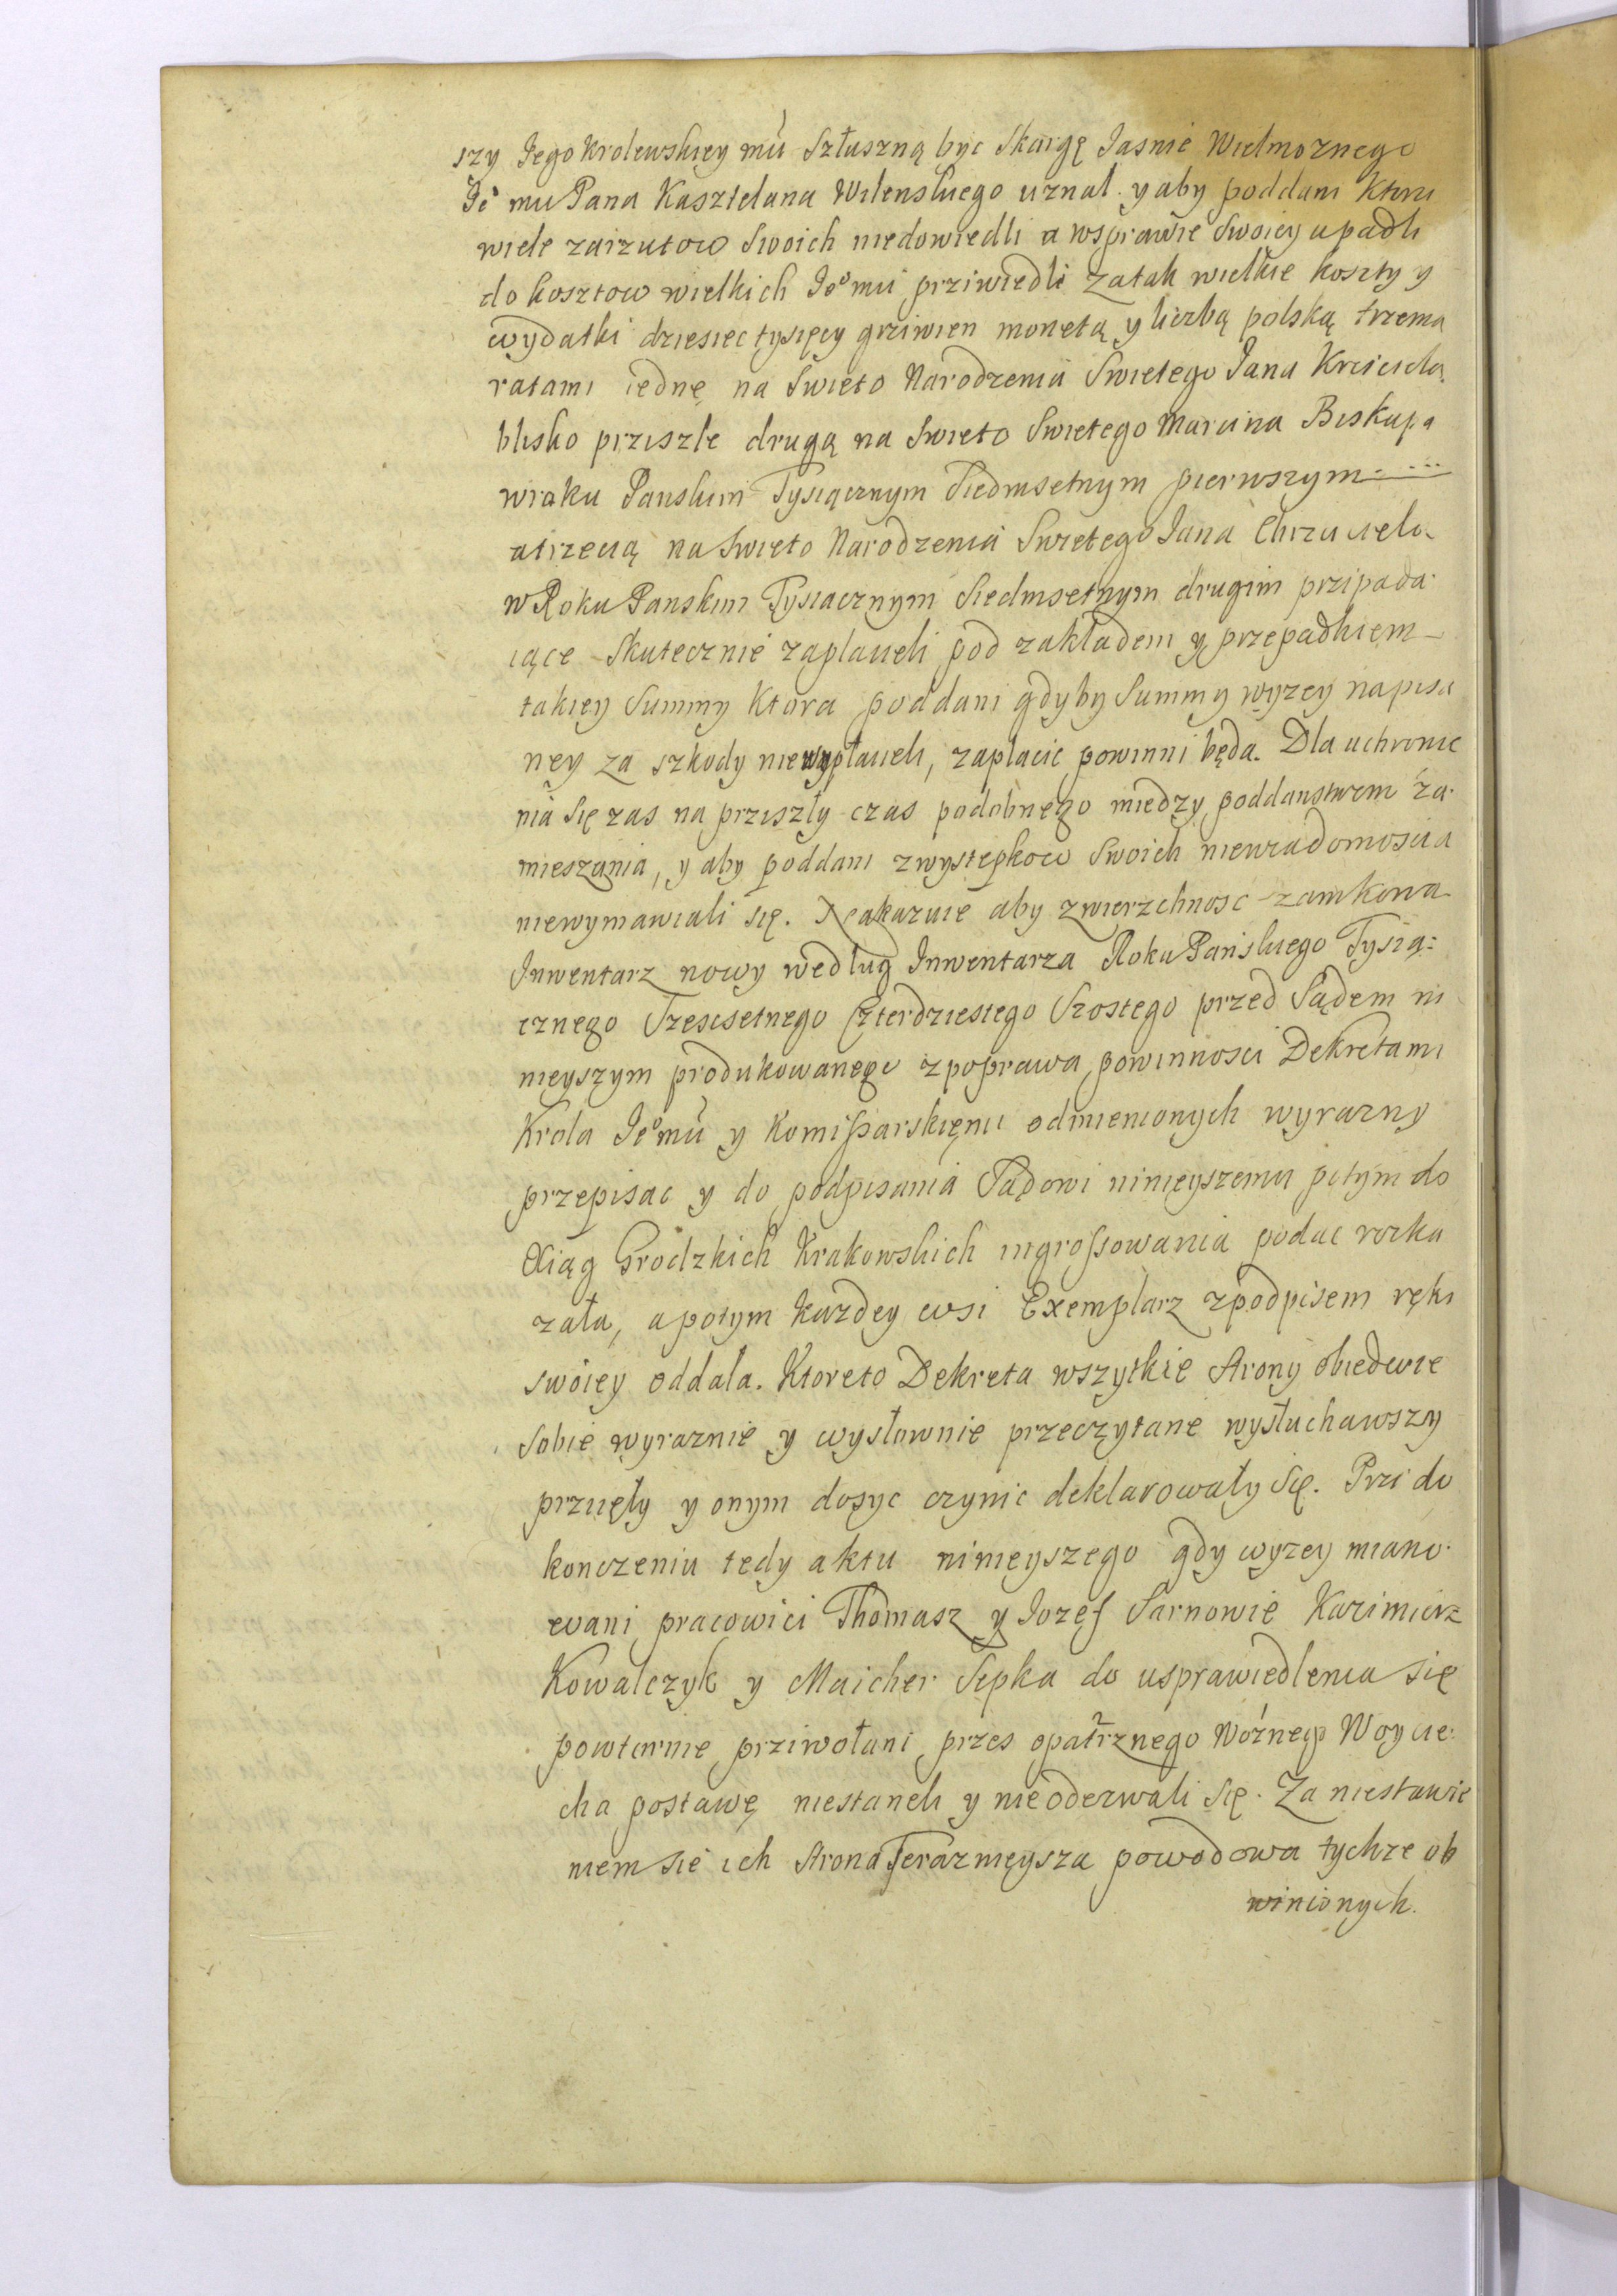 szy Jego Krolewskiey mu Słuszną byc Skargę Jasnie Wielmoznego
Je mu Pana Kasztelana Wilenskiego uznał y aby poddani ktorzi
wiele zarzutow swoich niedowiedli a wsprawie swoiey upadli
do kosztow wielkich Jeomu prziwiedli zatak wielkie koszty y
wydatki dziesiec tysięcy grziwien monetą y liczbą polską trzema
ratami iednę na Swieto Narodzenia Swietego Jana Krzściciela
blisko prziszłe drugą na Swieto Swietego Marcina Biskupa
wroku Panskim Tysiącznym Siedmsetnym pierwszym
atrzecią na Swieto Narodzenia Swietego Jana Chrzciciela
w Roku Panskim Tysiacznym Siedmsetnym drugim prżipada-
iące Skutecznie zapłacieli pod zakładem y przepadkiem
takiey Summy ktora poddani gdyby Summy wyzey napisa
ney za szkody niewypłacieli, zapłacic powinni będa. Dla uchronie
nia się zas na prziszły czas podobnego miedzy poddanstwem za-
mieszania, y aby poddani zwystepkow swoich niewiadomoscia
niewymawiali się. Nakazuie aby zwierzchnosc zamkowa
Inwentarz nowy według Inwentarza Roku Panskiego Tysią:
cznego Szescsetnego Czterdziestego Szostego przed Sądem ni
nieyszym produkowanego zpoprawa powinnosci Dekretami
Krola Jeomu y Komissarskiemi odmienionych wyrazny
przepisac y do podpisania Sądowi ninieyszemu potym do
Xiąg Grodzkich Krakowskich ingrossowania podac rozka
zała, apotym kazdey wsi Exemplarz zpodpisem ręki
swoiey oddała. Ktoreto Dekreta wszytkie strony obiedwie
sobie wyraznie y wysłownie przeczytane wysłuchawszy
przuęły y onym dosyc czynic deklarowały się. Przi do
konczeniu tedy aktu ninieyszego gdy wyzey miano-
wani pracowici Thomasz y Jozef Sarnowie Kazimierz
Kowalczyk y Maicher Sępka do usprawiedlenia się
powtornie prziwołani przes opatrznego Woźnego Woycie-
cha postawę niestaneli y nieoderwali się. Za niestawie
niem się ich strona Teraznieysza powodowa tychze ob
winionych.